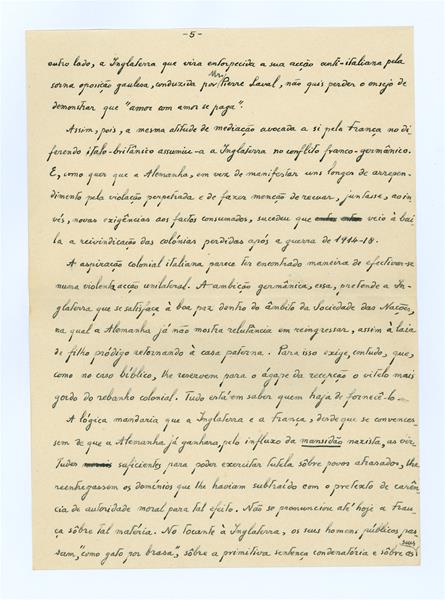 -5-
outro lado, a Inglaterra que vira entorpecida a sua acção anti-italiana pela
sorna oposição gaulesa, conduzida por Mr. Pierre Laval, não quis perder o ensejo de
demonstrar que "amor com amor se paga".
Assim, pois, a mesma atitude de mediação avocada a si pela França no di-
ferendo italo-britânico assumiu-a a Inglaterra no conflito franco-germânico.
E, como quer que a Alemanha, em vez de manifestar uns longes de arrepen-
dimento pela violação perpetrada e de fazer menção de recuar, juntasse, ao in-
vés, novas exigências aos factos consumados, sucedeu que veio à bai-
la a reivindicação das colónias perdidas após a guerra de 1914-18.
A aspiração colonial italiana parece ter encontrado maneira de efectivar-se
numa violenta acção unilateral. A ambição germânica, essa, pretende a In-
glaterra que se satisfaça à boa paz dentro do âmbito da Sociedade das Nações,
na qual a Alemanha já não mostra relutância em reingressar, assim à laia
de filho pródigo retornando à casa paterna. Para isso exige, contudo, que,
como no caso bíblico, lhe reservem para o ágape da recepção o vitelo mais
gordo do rebanho colonial. Tudo está em saber quem haja de fornecê-lo.
A lógica mandaria que a Inglaterra e a França, desde que se convences-
sem de que a Alemanha já ganhara, pelo influxo da mansidão nazista, as vir-
tudes morais suficientes para poder exercitar tutela sôbre povos atrasados, lhe
reentregassem os domínios que lhe haviam subtraído com o pretexto de carên-
cia de autoridade moral para tal efeito. Não se pronunciou até hoje a Fran-
ça sôbre tal matéria. No tocante à Inglaterra, os seus homens públicos pas-
sam, "como gato por brasa", sôbre a primitiva sentença condenatória e sôbre os
seus